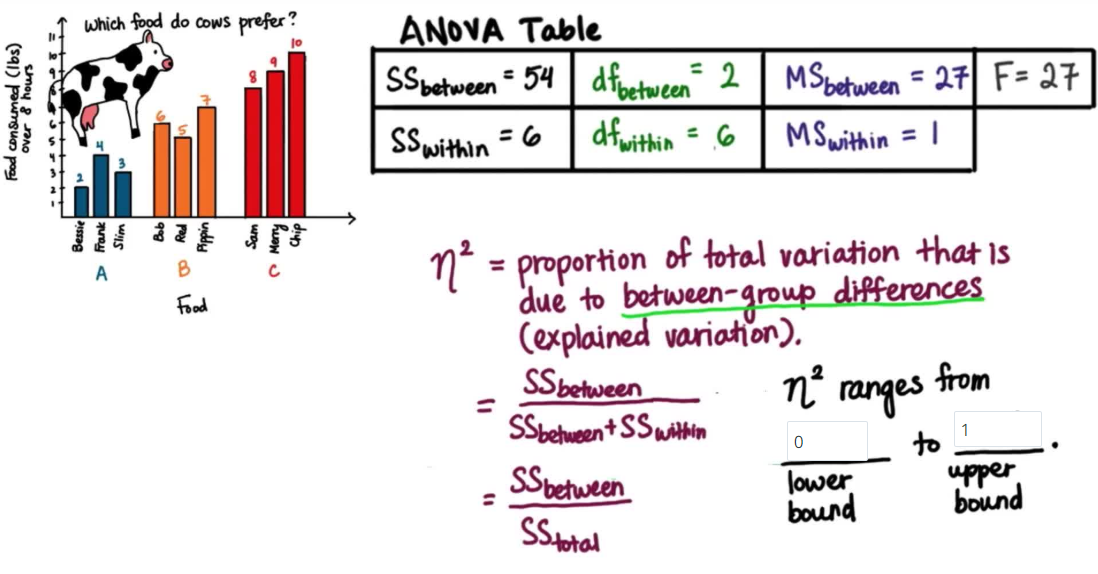 Which food do cows prefer?
Food consumed (lbs)
over 8 hours
11
10
9
8
7
6
5
4
3
2
1
2
4
3
6
5
7
8
9
10
Bessie
Frank
Slim
Bob
Red
Pippin
Sam
Merry
Chip
A
B
C
Food
ANOVA Table
SSbetween = 54 dfbetween = 2 MSbetween = 27 F = 27
SSwithin = 6 dfwithin = 6 MSwithin = 1
η² = proportion of total variation that is
due to between-group differences
(explained variation).
= SSbetween
SSbetween + SSwithin
= SSbetween
SStotal
η² ranges from
0 to 1 .
lower
bound
upper
bound